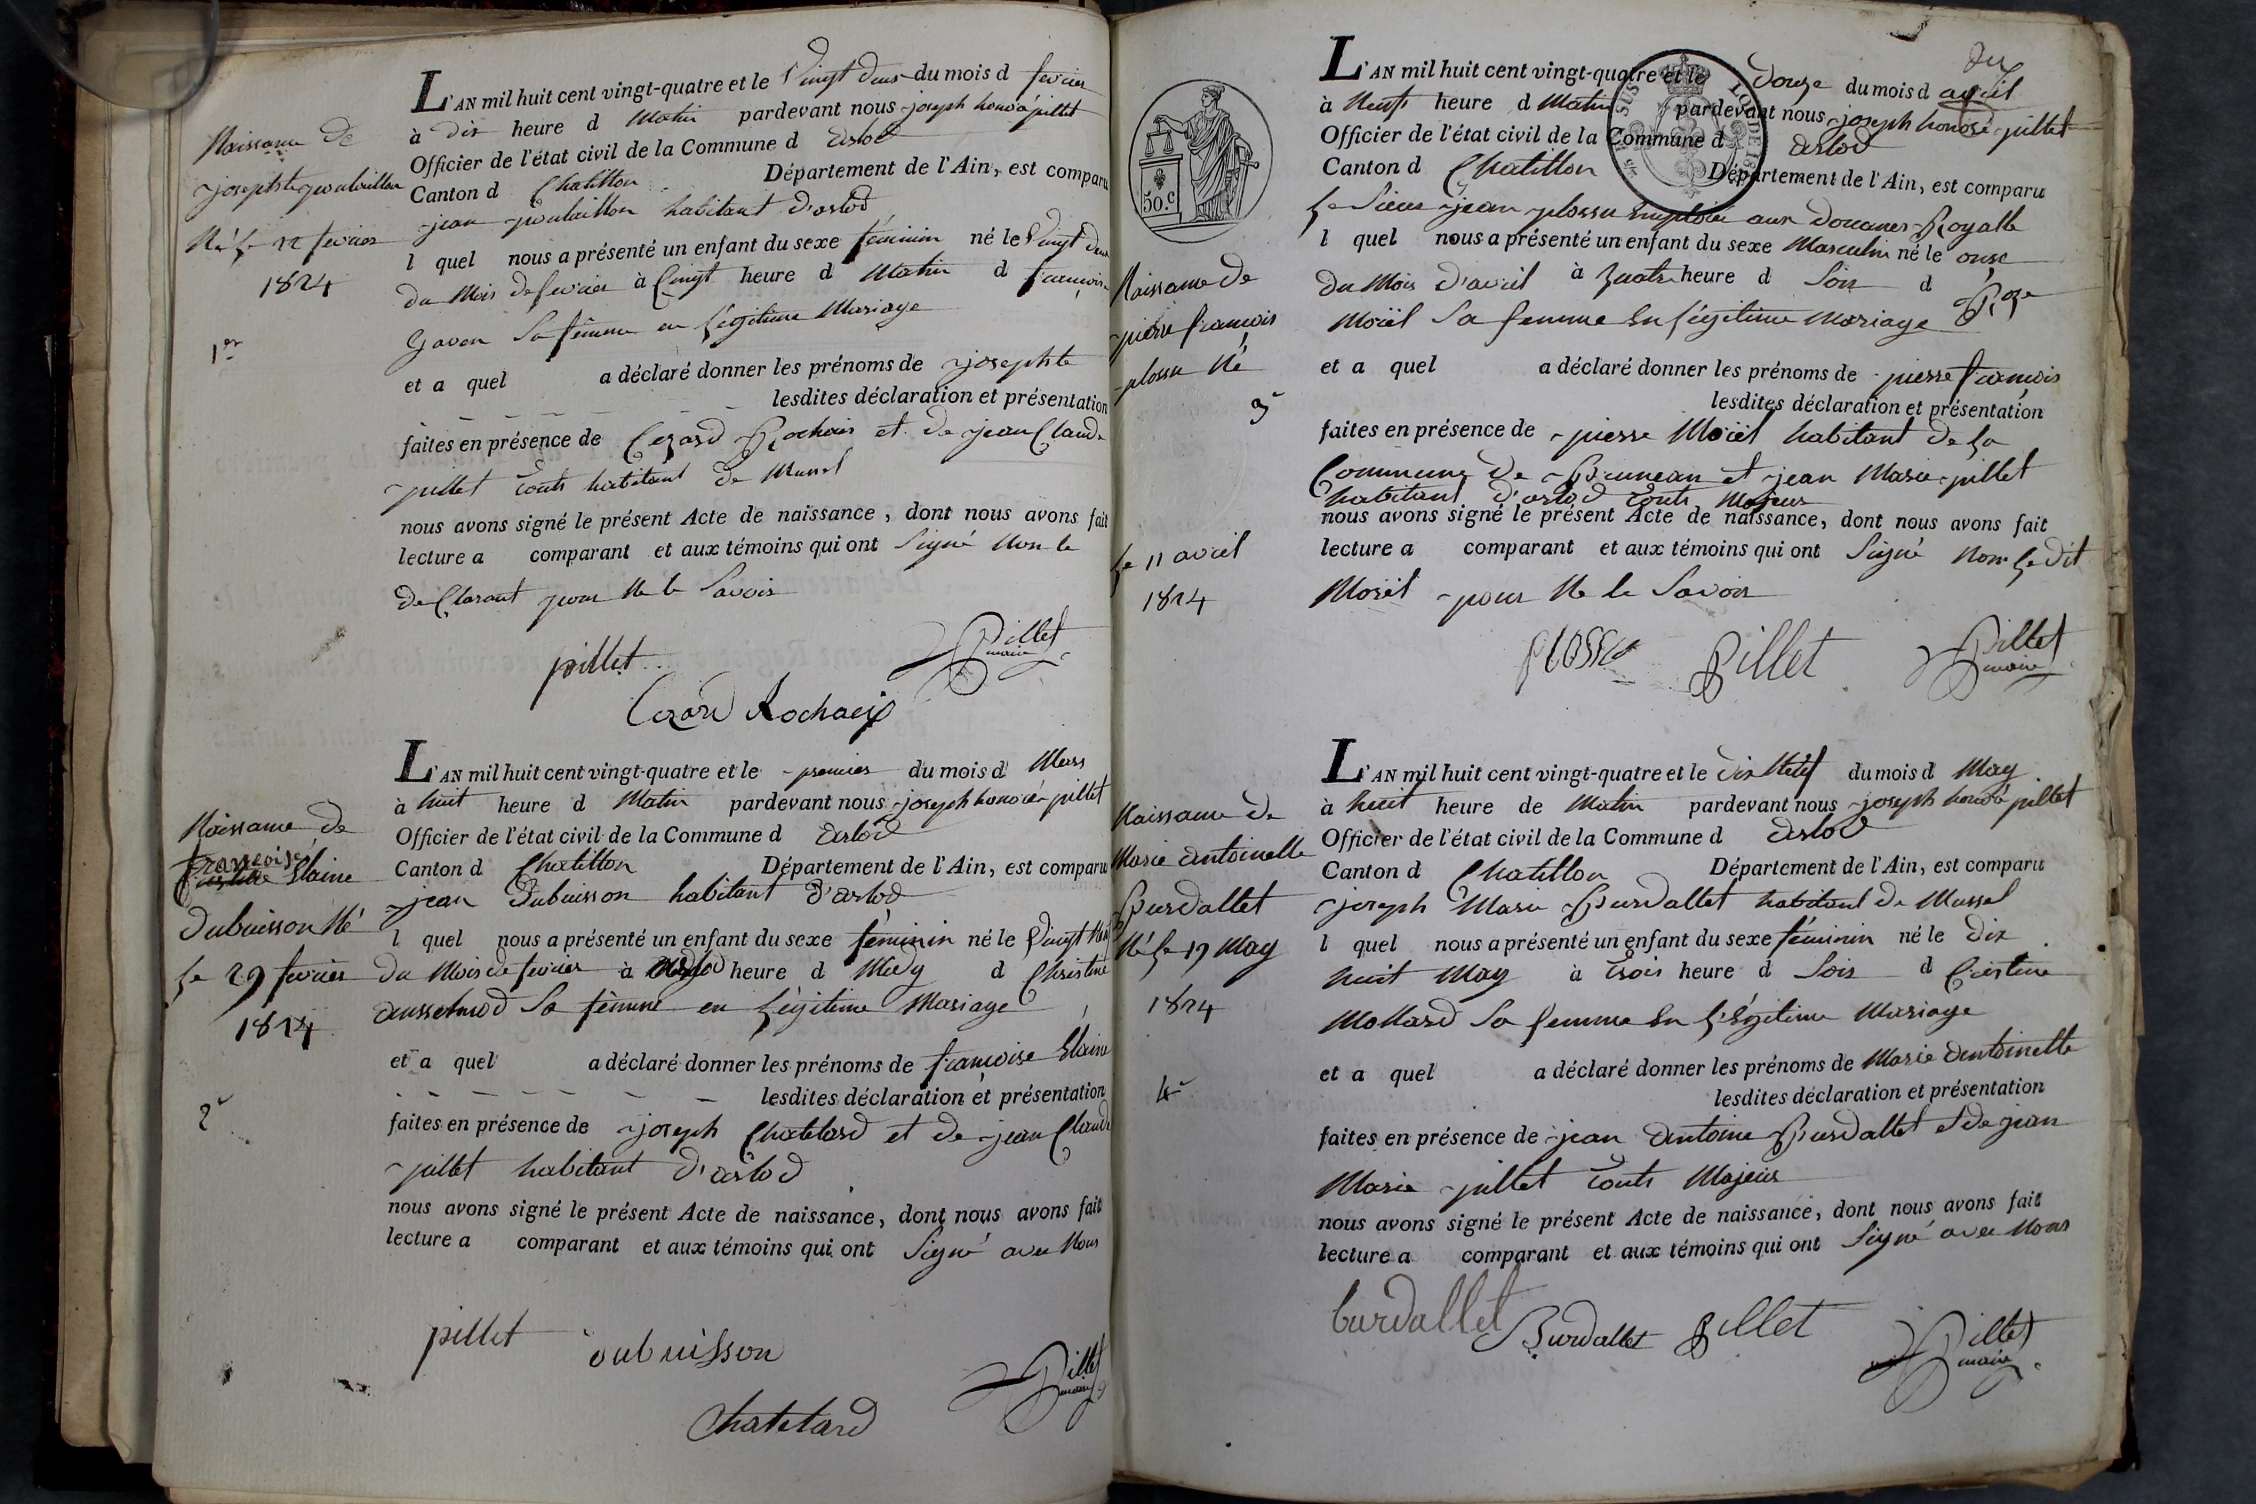 Naissance de
josephte poulaillon
Né le 22 fevrier
1824
1er
L'AN mil huit cent vingt-quatre et le Vingt deux du mois d fevrier
à dix heure d Matin pardevant nous joseph honoré pillet
Officier de l'état civil de la Commune d arlod
Canton d Chatillon Département de l'Ain, est comparu
jean poulaillon habitant d'arlod
l quel nous a présenté un enfant du sexe féminin né le Vingt deux
du Mois de fevrier à Cinqt heure d Matin d francoise
Gavon Sa fémme en Légitime Mariage
et a quel a déclaré donner les prénoms de josephte
lesdites déclaration et présentation
faites en présence de Cezard Rochaix et de jean Claude
pillet touts habitant de Mussel
nous avons signé le présent Acte de naissance, dont nous avons fait
lecture a comparant et aux témoins qui ont Signé Non le
de Clarant pour Ne le Savoir
pillet Pillet
maire
Cezard Rochaix
Naissance de
francoise
Elaine
Dubuisson Né
le 29 fevrier
1824
2e
L'AN mil huit cent vingt-quatre et le premier du mois d Mars
à huit heure d Matin pardevant nous joseph honoré pillet
Officier de l'état civil de la Commune d arlod
Canton d Chatillon Département de l'Ain, est comparu
jean Dubuisson habitant d'arlod
l quel nous a présenté un enfant du sexe féminin né le Vingt Neuf
du Mois de fevrier à heure d Midy d Christine
ausselmod Sa fémme en Légitime Mariage
et a quel a déclaré donner les prénoms de francoise Elaine
lesdites déclaration et présentation
faites en présence de joseph Chatelard et de jean Claude
pillet habitant d'arlod
nous avons signé le présent Acte de naissance, dont nous avons fait
lecture a comparant et aux témoins qui ont Signé avec Nous
pillet Dubuisson Pillet
maire
Chatelard
50.c
Naissance de
pierre francois
plossu Né
3e
le 11 avril
1824
L'AN mil huit cent vingt-quatre et le douze du mois d avril
à Neuf heure d Matin pardevant nous joseph honoré pillet
Officier de l'état civil de la Commune d arlod
Canton d Chatillon Département de l'Ain, est comparu
Le Sieur jean plossu Emploiée aux douanes Royalle
l quel nous a présenté un enfant du sexe Masculin né le onze
du Mois d'avril à quatre heure d Soir d Roze
Moiël Sa femme En Légitime Mariage
et a quel a déclaré donner les prénoms de pierre francois
lesdites déclaration et présentation
faites en présence de pierre Moiël habitant de La
Commune de et jean Marie pillet
habitant d'arlod touts Majeur
nous avons signé le présent Acte de naissance, dont nous avons fait
lecture a comparant et aux témoins qui ont Signé Non Le dit
Moiël pour Ne le Savoir
plossu Pillet Pillet
maire
Naissance de
Marie antoinette
Burdallet
Né le 19 May
1824
4e
L'AN mil huit cent vingt-quatre et le dix Neuf du mois d May
à huit heure de Matin pardevant nous joseph honoré pillet
Officier de l'état civil de la Commune d arlod
Canton d Chatillon Département de l'Ain, est comparu
joseph Marie Burdallet habitant de Mussel
l quel nous a présenté un enfant du sexe féminin né le dix
huit May à trois heure d Soir d Cristine
Mollard Sa femme En Légitime Mariage
et a quel a déclaré donner les prénoms de Marie Antoinette
lesdites déclaration et présentation
faites en présence de jean Antoine Burdallet et de jean
Marie pillet touts Majeur
nous avons signé le présent Acte de naissance, dont nous avons fait
lecture a comparant et aux témoins qui ont Signé avec Nous
burdallet Burdallet Pillet Pillet
maire